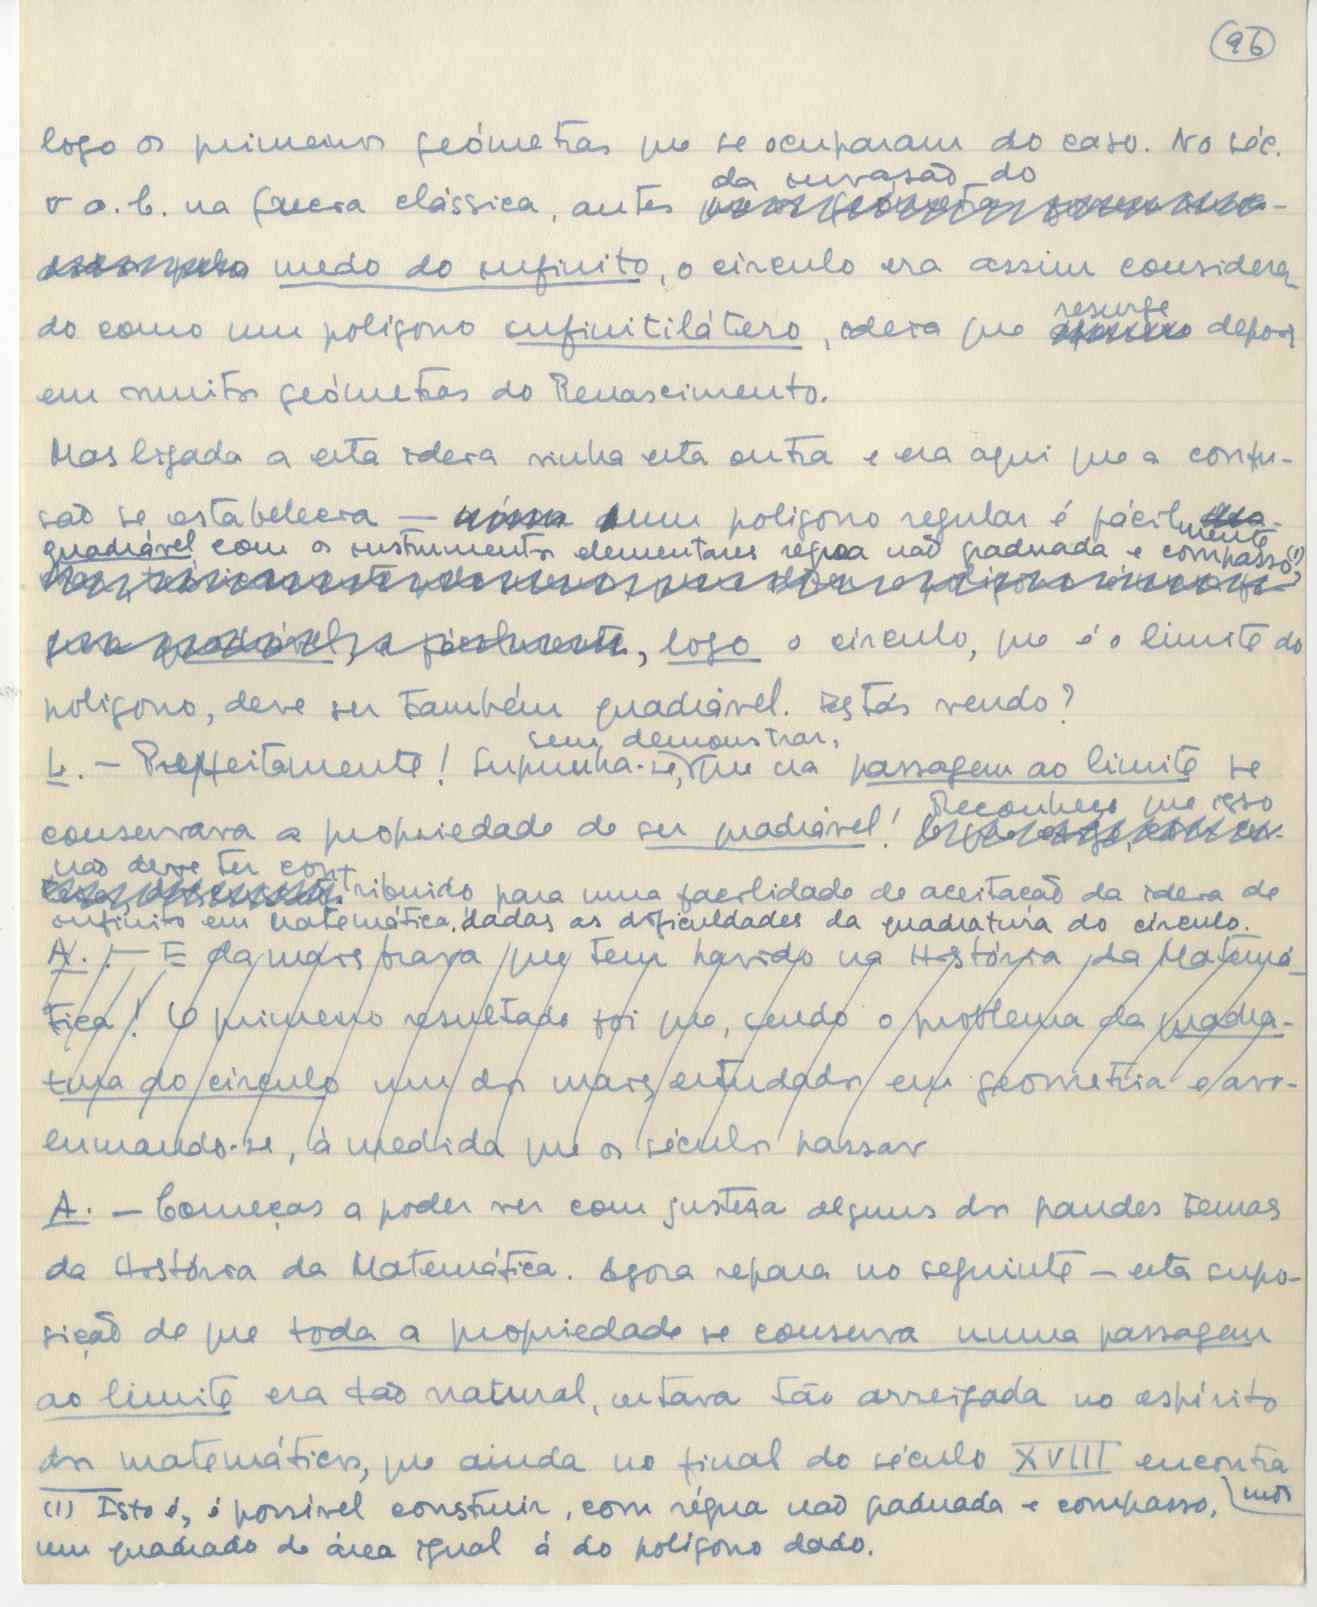 96
logo os primeiros geómetras que se ocuparam do caso. No séc.
V a.C. na Grécia clássica, antes da invasão do
medo do infinito, o círculo era assim considera-
do como um polígono infinitilátero, ideia que resurge depois
em muitos geómetras do Renascimento.
Mas ligada a esta ideia vinha esta outra e era aqui que a confu-
são se estabelecia — um polígono regular é fácilmente
quadrável com os instrumentos elementares régua não graduada e compasso (1)
, logo o círculo, que é o limite do
polígono, deve ser também quadrável. Estás vendo?
L. — Perfeitamente! Supunha-se, sem demonstrar, que na passagem ao limite se
conservava a propriedade de ser quadrável! Reconheço que isso
não deve ter contribuido para uma facilidade de aceitação da ideia de
infinito em Matemática, dadas as dificuldades da quadratura do círculo.
A. — E da mais brava que tem havido na História da Matemá-
tica! O primeiro resultado foi que, sendo o problema da quadra-
tura do círculo um dos mais estudados em geometria e avo-
lumando-se, à medida que os séculos passav
A. — Começas a poder ver com justeza alguns dos grandes temas
da História da Matemática. Agora repara no seguinte — esta supo-
sição de que toda a propriedade se conserva numa passagem
ao limite era tão natural, estava tão arreigada no espírito
dos matemáticos, que ainda no final do século XVIII encontra
mos
(1) Isto é, é possível construir, com régua não graduada e compasso,
um quadrado de área igual à do polígono dado.